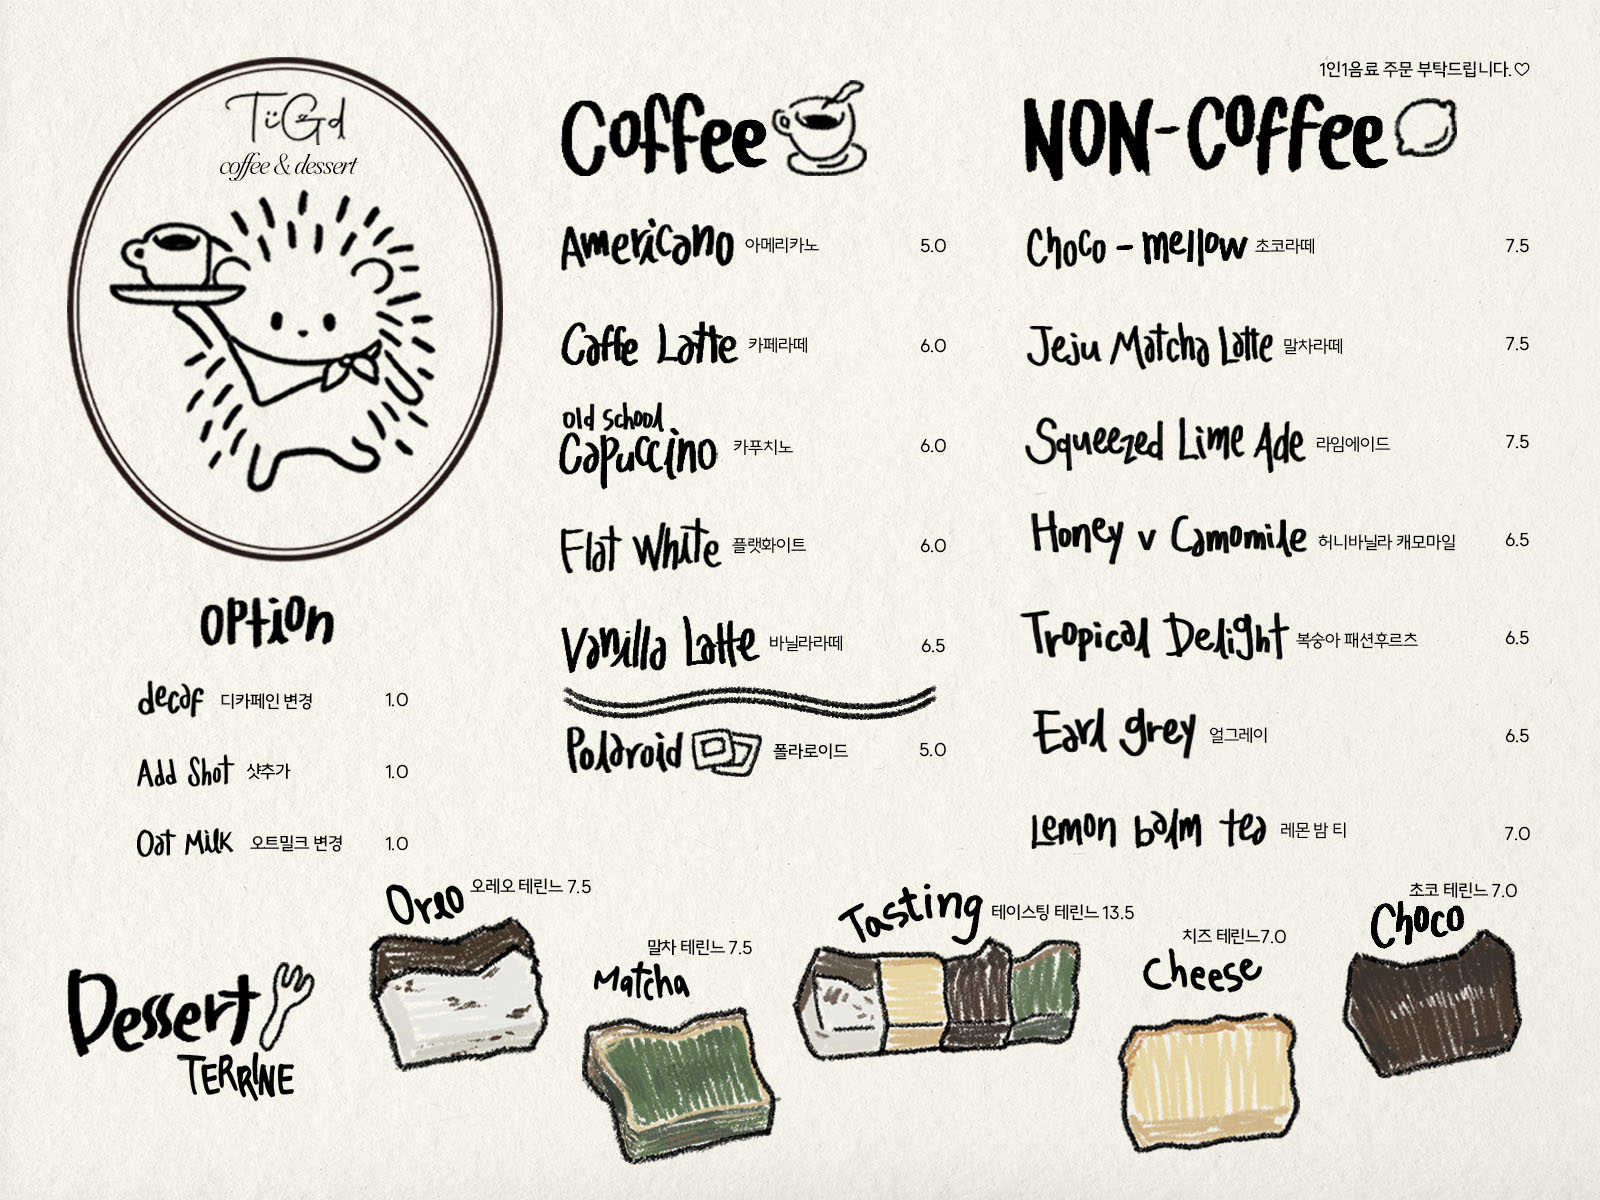 TiiGd
coffee & dessert
option
decaf 디카페인 변경 1.0
Add Shot 샷추가 1.0
Oat Milk 오트밀크 변경 1.0
Coffee
Americano 아메리카노 5.0
Caffe Latte 카페라떼 6.0
old school
Capuccino 카푸치노 6.0
Flat White 플랫화이트 6.0
Vanilla Latte 바닐라라떼 6.5
Polaroid 폴라로이드 5.0
1인1음료 주문 부탁드립니다.♡
NON-Coffee
Choco - mellow 초코라떼 7.5
Jeju Matcha Latte 말차라떼 7.5
Squeezed Lime Ade 라임에이드 7.5
Honey v Camomile 허니바닐라 캐모마일 6.5
Tropical Delight 복숭아 패션후르츠 6.5
Earl grey 얼그레이 6.5
Lemon balm tea 레몬 밤 티 7.0
Dessert
TERRINE
Oreo 오레오 테린느 7.5
말차 테린느 7.5
Matcha
Tasting 테이스팅 테린느 13.5
치즈 테린느7.0
Cheese
초코 테린느 7.0
Choco